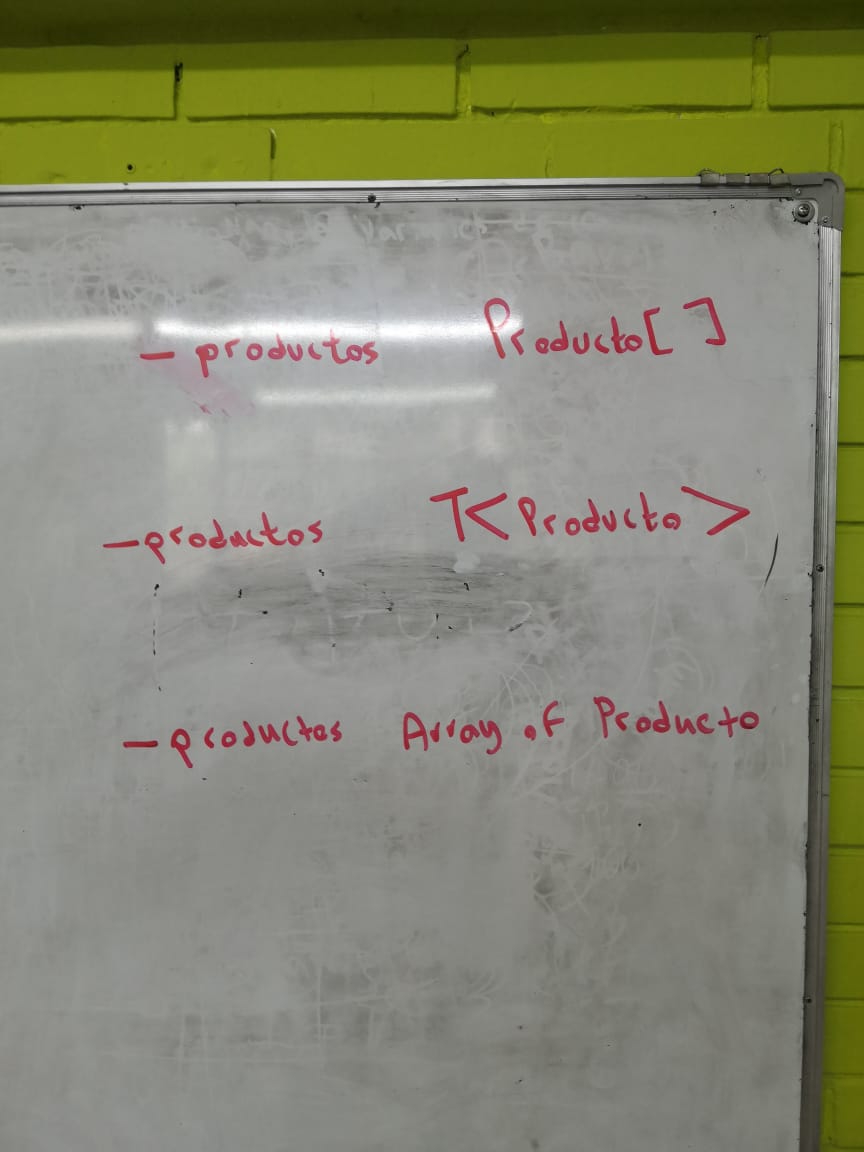 - productos Producto[ ]
- productos T<Producto>
- productos Array of Producto